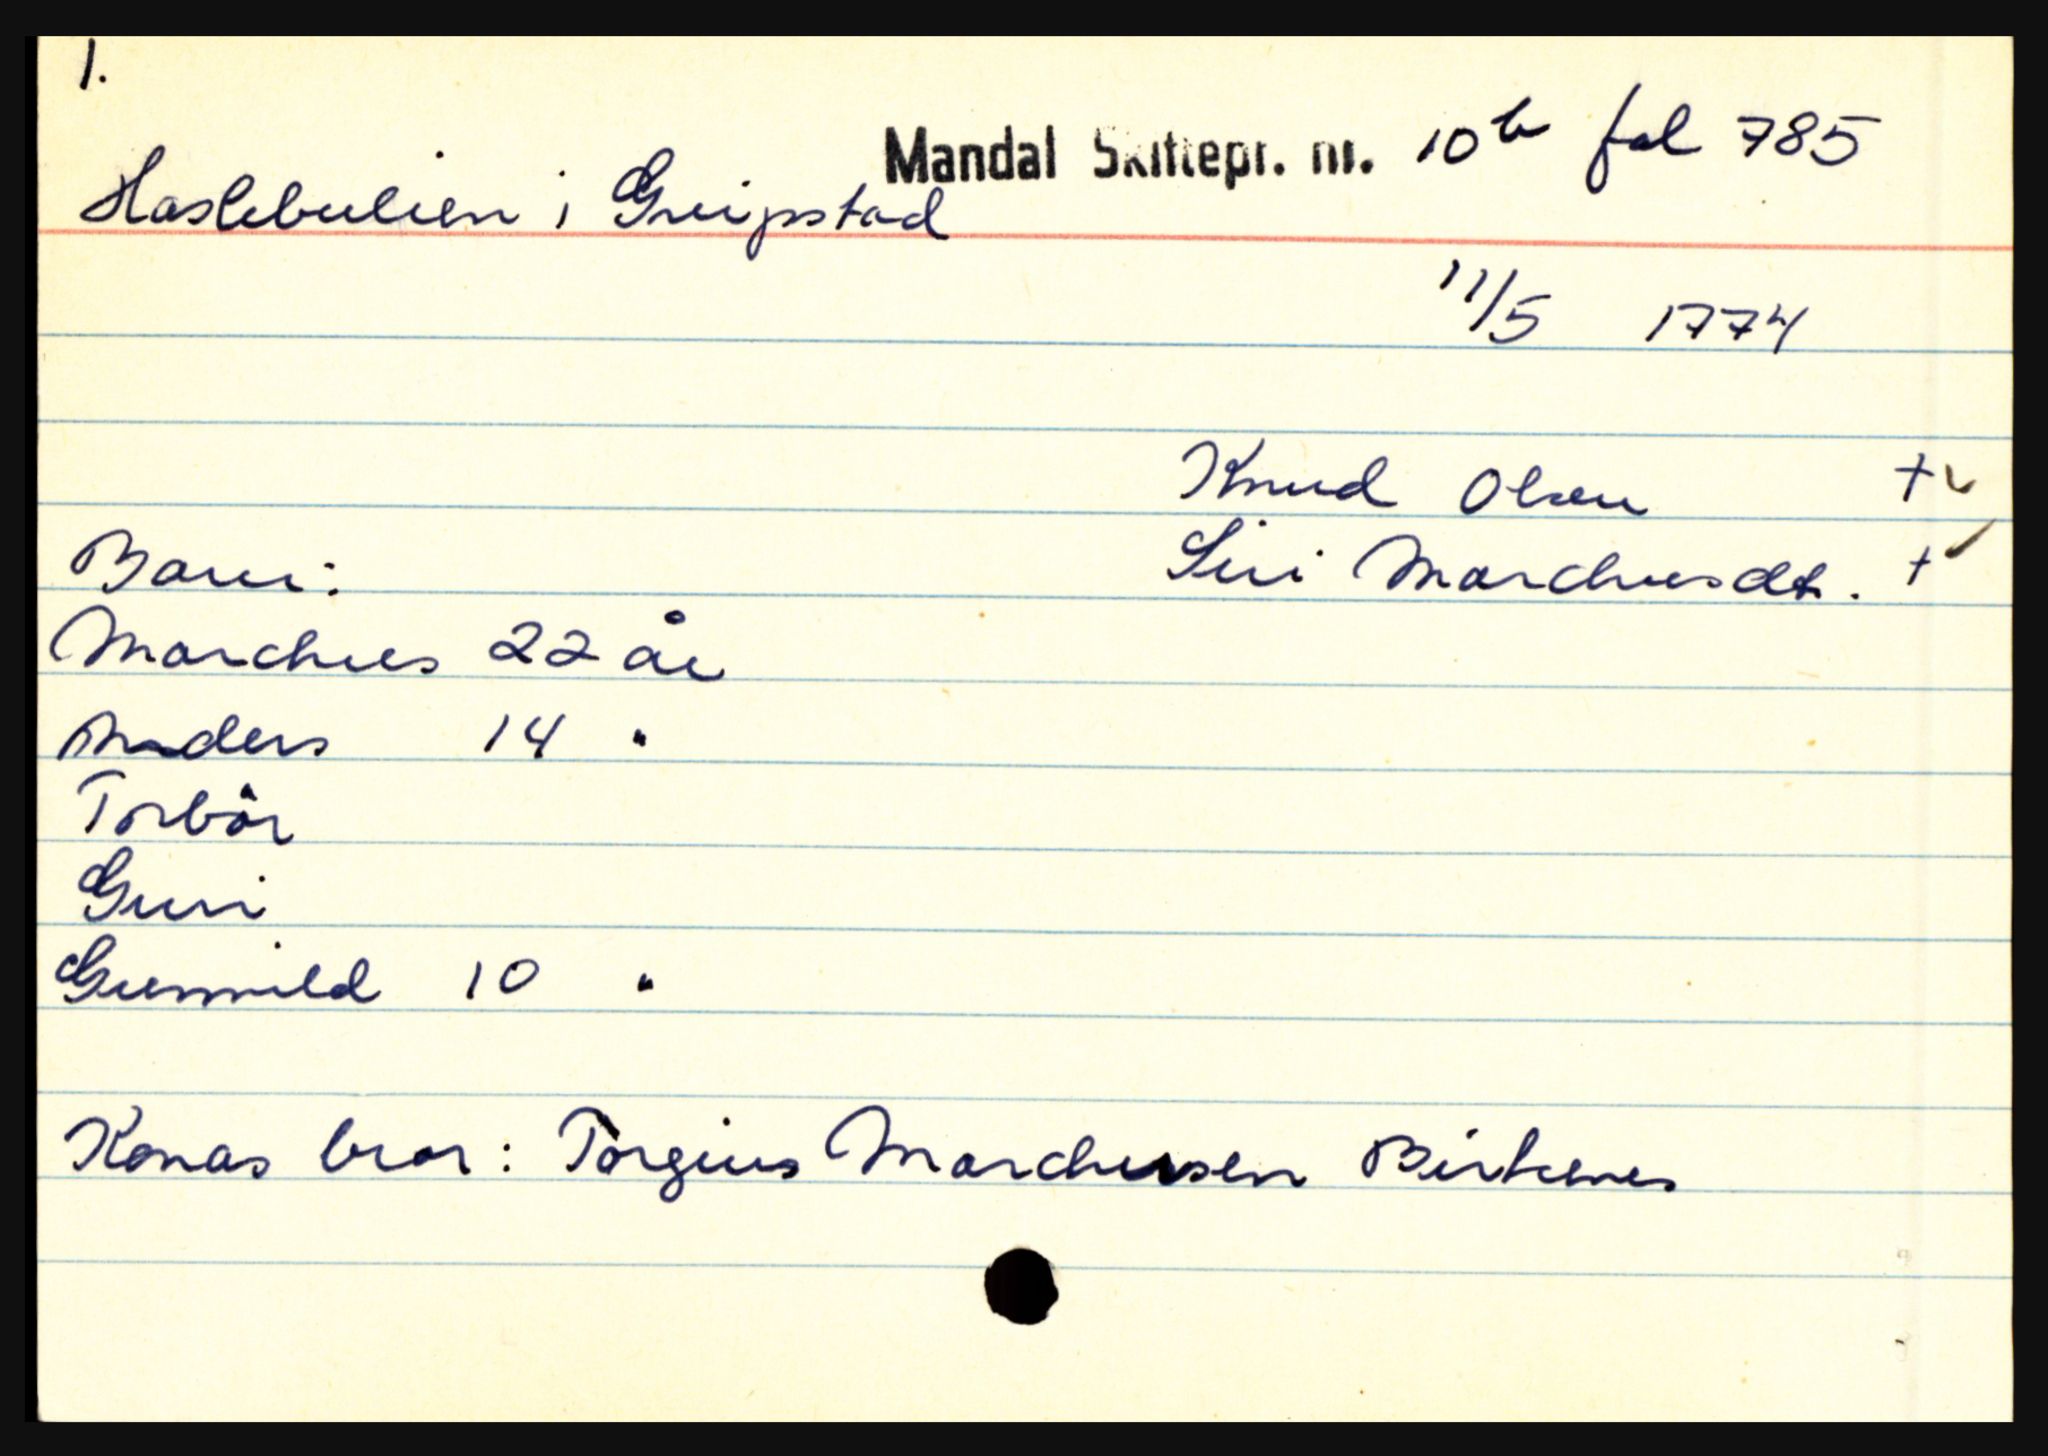 1.
Mandal Skiftepr. nr. 10b fol 785
Haslebulien i Greipstad
11/5 1774
Knud Olsen +
Barn: Siri Marchusdt. +
Marchus 22 år
Anders 14 "
Torbör
Guri
Gunnild 10 "
Konas bror: Torgius Marchusen Birkenes